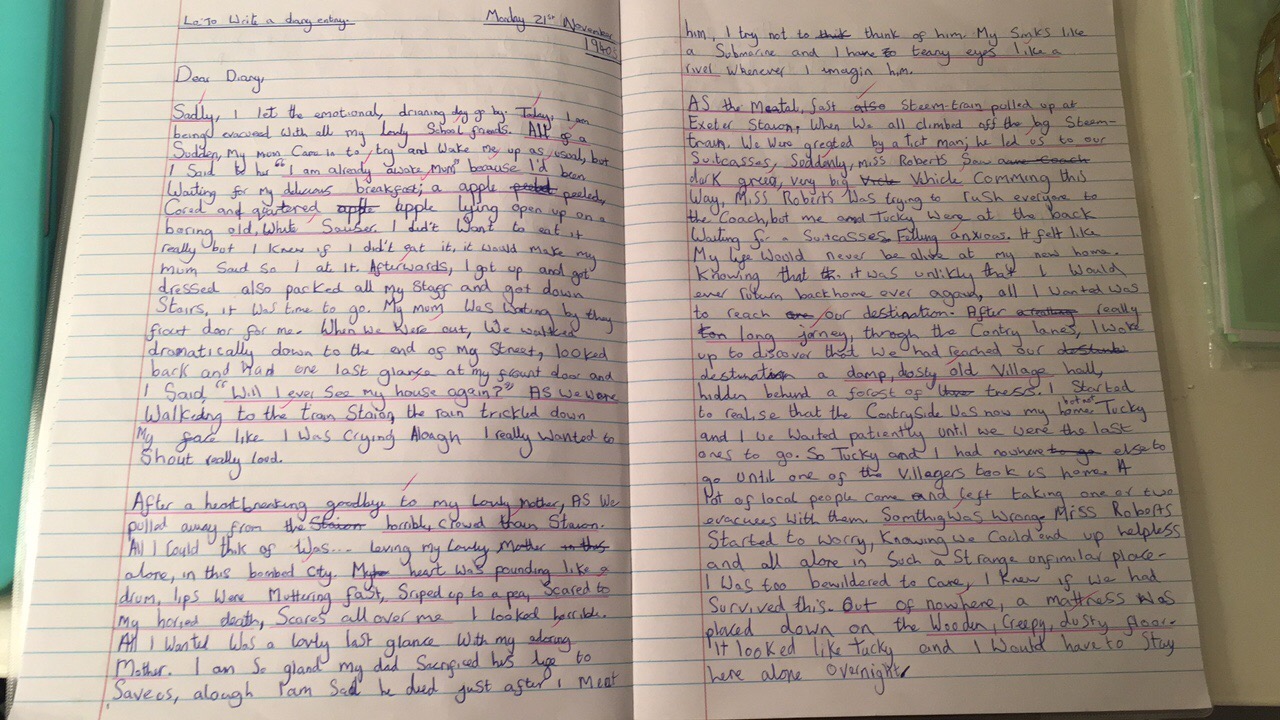 Lo: To Write a diary entry.
Monday 21st November
1940s
Dear Diary,
Sadly, I let the emotional, draning day go by. Today, I am
being evacueed with all my lovly School friends. All of a
Sudden, My mum Came in to try and wake me up as usual, but
I Said to he "I am already awake Mum" because I'd been
Waiting for my delicous breakfast; a apple peeled,
Cored and apple lying open up on a
boring old, White Sauser. I didn't Want to eat it
really but I Knew if I didn't eat it, it would make my
mum Sad so I at it. Afterwards, I got up and got
dressed also packed all my Staff and got down
Stairs, it was time to go. My mum Was waiting by they
front door for me. When we were out, We walked
dramatically down to the end of my Street, looked
back and Had one last glance at my front door and
I Said, "Will I ever See my house again?" AS we were
Walking to the train Staion, the rain trickled down
My face like I Was Crying Alough I really Wanted to
Shout really loud.
After a heartbreaking goodbye to my Lovly Mother, AS We
pulled away from the Staion horrible, crowd Staion.
All I Could thik of Was... leving my Lovly Mother
alone, in this bombed City. My heart was pounding like a
drum, lips Were Muttering fast, Sriped up to a pea, Scared to
My horied death, Scares all over me I looked horrible.
All I Wanted Was a lovly last glance With my adoring
Mother. I am So gland my dad Sacrificed his life to
Save os, alough Pam Sad he died just after I Meat
him, I try not to think think of him. My Sinks like
a Submarine and I have to teary eyes like a
river Whenever I imagin him.
AS the Meatal, fast also Steem-train pulled up at
Exeter Staion, When We all climbed off the big Steem-
train. We Were greated by a man; he led us to our
Suitcasses, Suddenly, miss Roberts Saw
dark green, very big Vehicle Comming this
Way, Miss Roberts Was trying to rush everyone to
the Coach, but me and Tucky Were at the back
Waiting for a Suitcasses Felling anxious. It felt like
My life Would never be alive at my new home.
Knowing that it was unlikly that I Would
ever return back home ever again, all I Wanted Was
to reach our destination. After really
long jorney, through the Contry lanes, I Woke
up to discover that We had reached our
destination a damp, dosty old Village hall,
hidden behind a forest of tress. I Started
to realise that the Contryside Was now my home Tucky
and I we Waited patiently until we were the last
ones to go. So Tucky and I had nowhere to go else to
go Until one of the Villagers took us home. A
lot of local people came and left taking one or two
evacuees With them. Somthig Was Wrong Miss Roberts
Started to Worry, Knowing we Could end up helpless
and all alone in Such a Strange unfimilar place.
I Was too bewildered to care, I Knew if We had
Survived this. Out of nowhere, a mattress Was
placed down on the Wooden, Creepy, dusty floor.
It looked like Tucky and I Would have to Stay
here alone overnight.